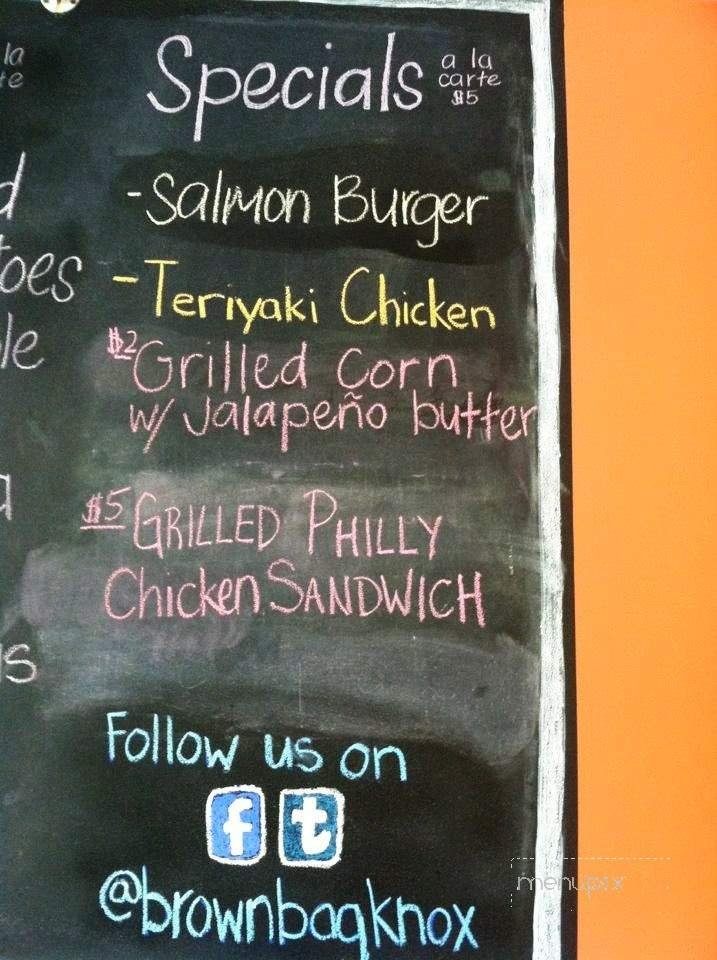 la
te
d
toes
le
a
s
Specials a la
carte
$5
-Salmon Burger
-Teriyaki Chicken
$2 Grilled Corn
w/ Jalapeño butter
$5 GRILLED PHILLY
Chicken SANDWICH
Follow us on
f t
@brownbagknox
menupix